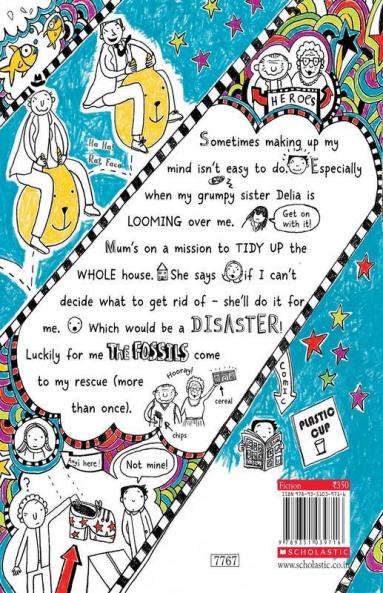 HEROES
Ha Ha!
Rat Face
Sometimes making up my
mind isn't easy to do. Especially
when my grumpy sister Delia is
LOOMING over me.
Get on
with it!
Mum's on a mission to TIDY UP the
WHOLE house. She says if I can't
decide what to get rid of - she'll do it for
me. Which would be a DISASTER!
Luckily for me THE FOSSILS come
to my rescue (more
than once).
Hooray!
cereal
chips
COMIC
PLASTIC
CUP
here!
Not mine!
Fiction
₹350
ISBN 978-93-5103-971-6
9 789351 039716
SCHOLASTIC
www.scholastic.co.in
7767